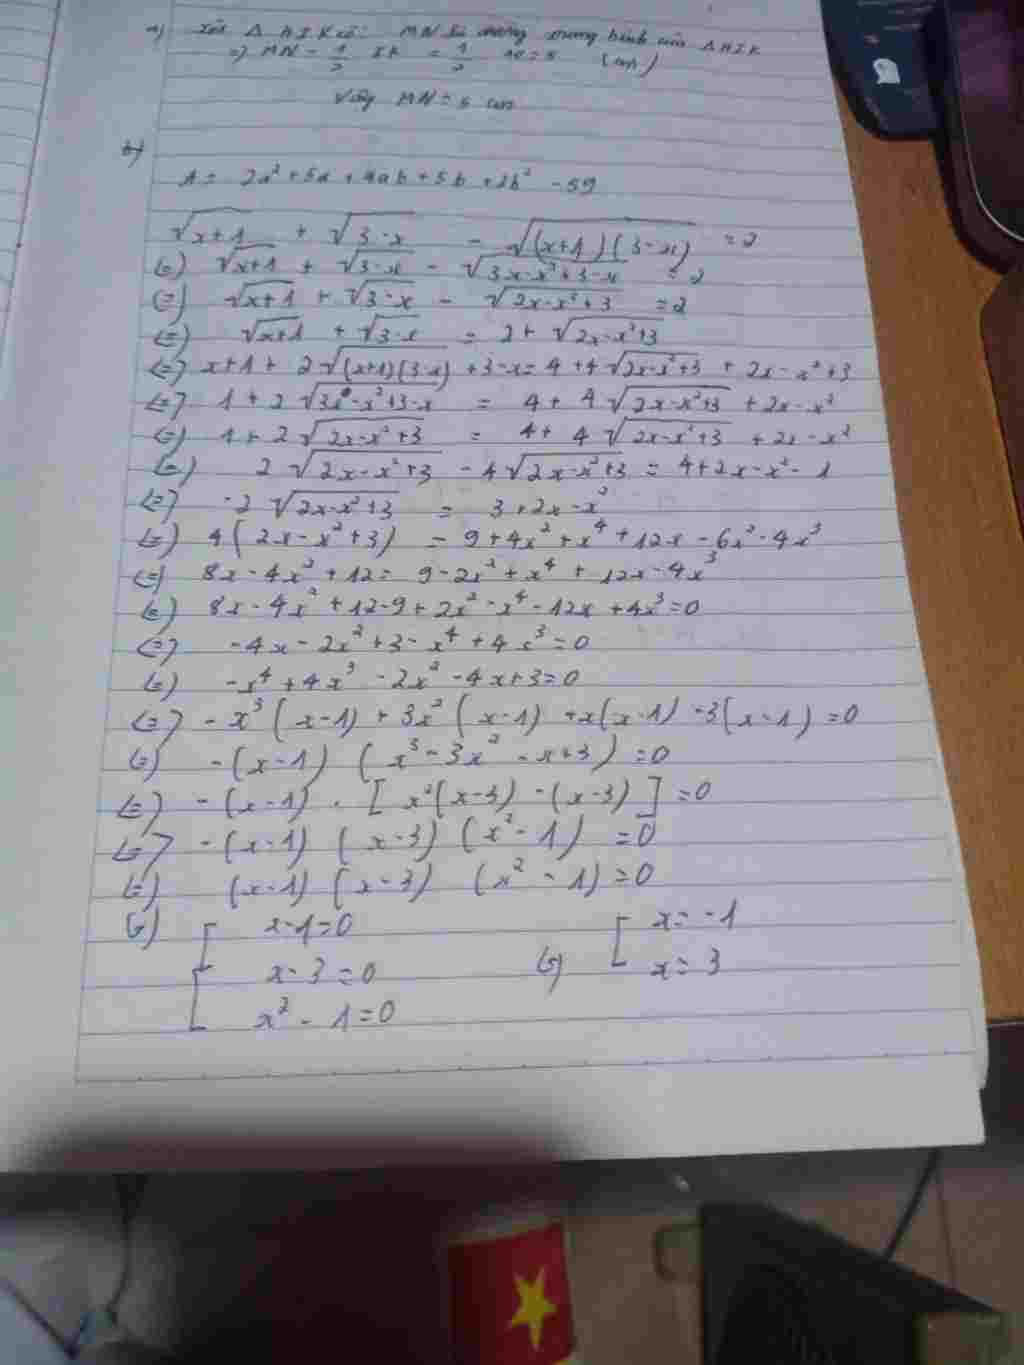 a) Xét Δ HIK có: MN là đường trung bình của Δ HIK
=) MN = 1/2 IK = 1/2 10 = 5 (cm)
Vậy MN = 5 cm
b)
A = 2a² + 5a + 4ab + 5b + 2b² - 59
√(x+1) + √(3-x) - √((x+1)(3-x)) = 2
(=) √(x+1) + √(3-x) - √(3x-x²+3-x) = 2
(=) √(x+1) + √(3-x) - √(2x-x²+3) = 2
(=) √(x+1) + √(3-x) = 2 + √(2x-x²+3)
(=) x+1 + 2√((x+1)(3-x)) + 3-x = 4 + 4√(2x-x²+3) + 2x - x² + 3
(=) 1 + 2√(3x-x²+3-x) = 4 + 4√(2x-x²+3) + 2x - x²
(=) 1 + 2√(2x-x²+3) = 4 + 4√(2x-x²+3) + 2x - x²
(=) 2√(2x-x²+3) - 4√(2x-x²+3) = 4 + 2x - x² - 1
(=) -2√(2x-x²+3) = 3 + 2x - x²
(=) 4(2x - x² + 3) = 9 + 4x² + x⁴ + 12x - 6x² - 4x³
(=) 8x - 4x² + 12 = 9 - 2x² + x⁴ + 12x - 4x³
(=) 8x - 4x² + 12 - 9 + 2x² - x⁴ - 12x + 4x³ = 0
(=) -4x - 2x² + 3 - x⁴ + 4x³ = 0
(=) -x⁴ + 4x³ - 2x² - 4x + 3 = 0
(=) -x³(x-1) + 3x²(x-1) + x(x-1) - 3(x-1) = 0
(=) -(x-1)(x³ - 3x² - x + 3) = 0
(=) -(x-1) . [x²(x-3) - (x-3)] = 0
(=) -(x-1)(x-3)(x²-1) = 0
(=) (x-1)(x-3)(x²-1) = 0
(=) [ x-1=0 (=) [ x = -1
x-3=0 x = 3
x² - 1 = 0